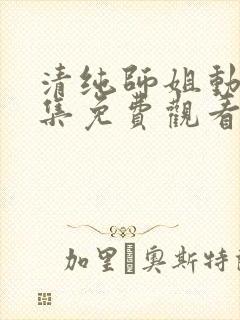 清纯師姐動
集免費觀看
加里 奧斯特